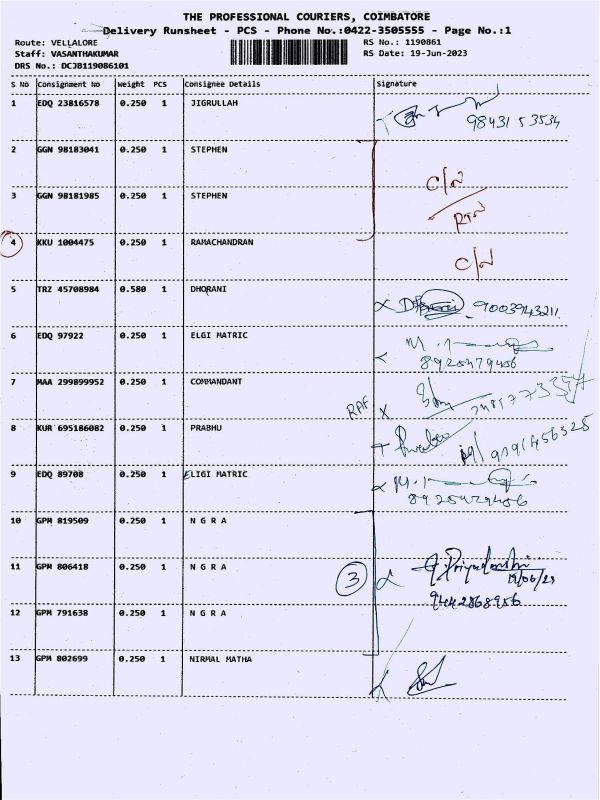 THE PROFESSIONAL COURIERS, COIMBATORE
Delivery Runsheet - PCS - Phone No.:0422-3505555 - Page No.:1
Route: VELLALORE RS No.: 1190861
Staff: VASANTHAKUMAR RS Date: 19-Jun-2023
DRS No.: DCJB119086101
S No Consignment No Weight PCS Consignee Details Signature
1 EDQ 23816578 0.250 1 JIGRULLAH
98431 53534
2 GGN 98183041 0.250 1 STEPHEN
C/N
3 GGN 98181985 0.250 1 STEPHEN
RTN
4 KKU 1004475 0.250 1 RAMACHANDRAN
C/N
5 TRZ 45708984 0.580 1 DHORANI
9003943211
6 EDQ 97922 0.250 1 ELGI MATRIC
8925479486
7 MAA 299899952 0.250 1 COMMANDANT
RAF X
8 KUR 695186082 0.250 1 PRABHU
9091456325
9 EDQ 89708 0.250 1 ELIGI MATRIC
10 GPM 819509 0.250 1 N G R A
11 GPM 806418 0.250 1 N G R A
3 Priyadarshi
19/06/23
9442868956
12 GPM 791638 0.250 1 N G R A
13 GPM 802699 0.250 1 NIRMAL MATHA